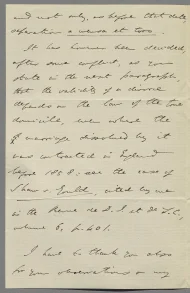 and not only, as before that date,
separation a mensa et toro.
It has however been decided,
after some conflict, as you
state in the next paragraph,
that the validity of a divorce
depends on the law of the true
domicile, even where the
marriage dissolved by it
was contracted in England
before 1858: see the case of
Shaw v. Gould, cited by me
in the Revue de D. I. et de L. C.,
volume 6, p. 401.
I have to thank you also
for your observations on my